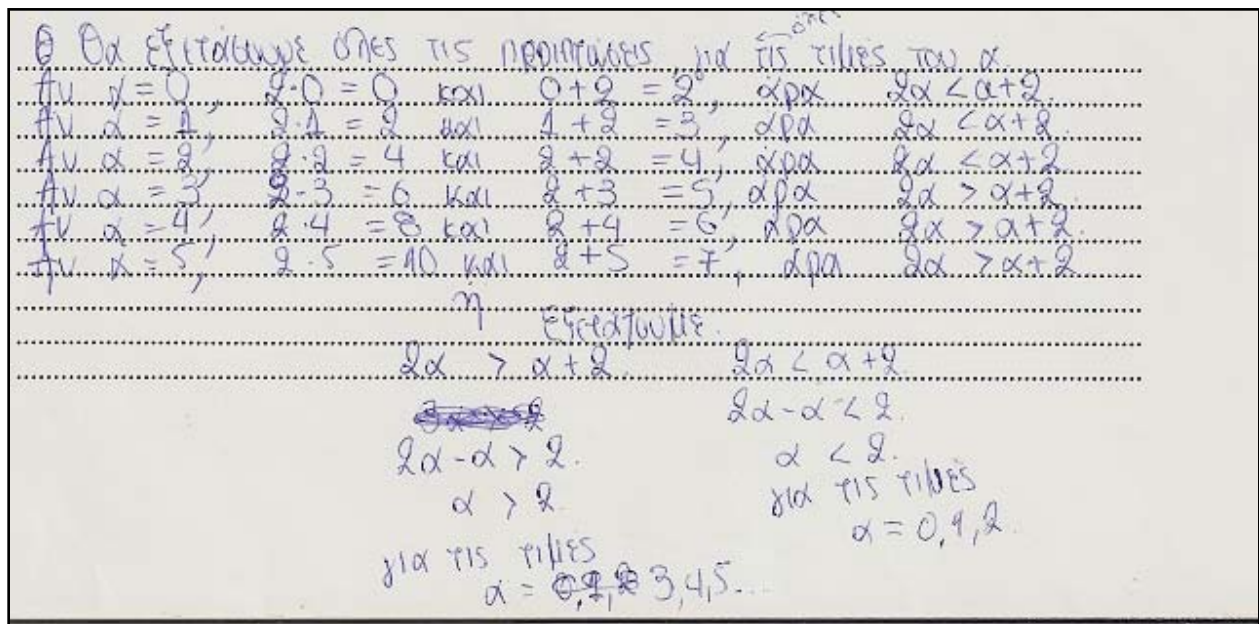 όλες
Θα εξετάσουμε όλες τις περιπτώσεις για τις τιμές του α.
Αν α = 0, 2·0 = 0 και 0+2 = 2, άρα 2α < α+2.
Αν α = 1, 2·1 = 2 και 1+2 = 3, άρα 2α < α+2.
Αν α = 2, 2·2 = 4 και 2+2 = 4, άρα 2α < α+2.
Αν α = 3, 2·3 = 6 και 2+3 = 5, άρα 2α > α+2.
Αν α = 4, 2·4 = 8 και 2+4 = 6, άρα 2α > α+2.
Αν α = 5, 2·5 = 10 και 2+5 = 7, άρα 2α > α+2
ή
εξετάζουμε.
2α > α+2. 2α < α+2.
2α-α < 2.
2α-α > 2. α < 2.
α > 2. για τις τιμές
α = 0,1,2.
για τις τιμές
α = 3,4,5...